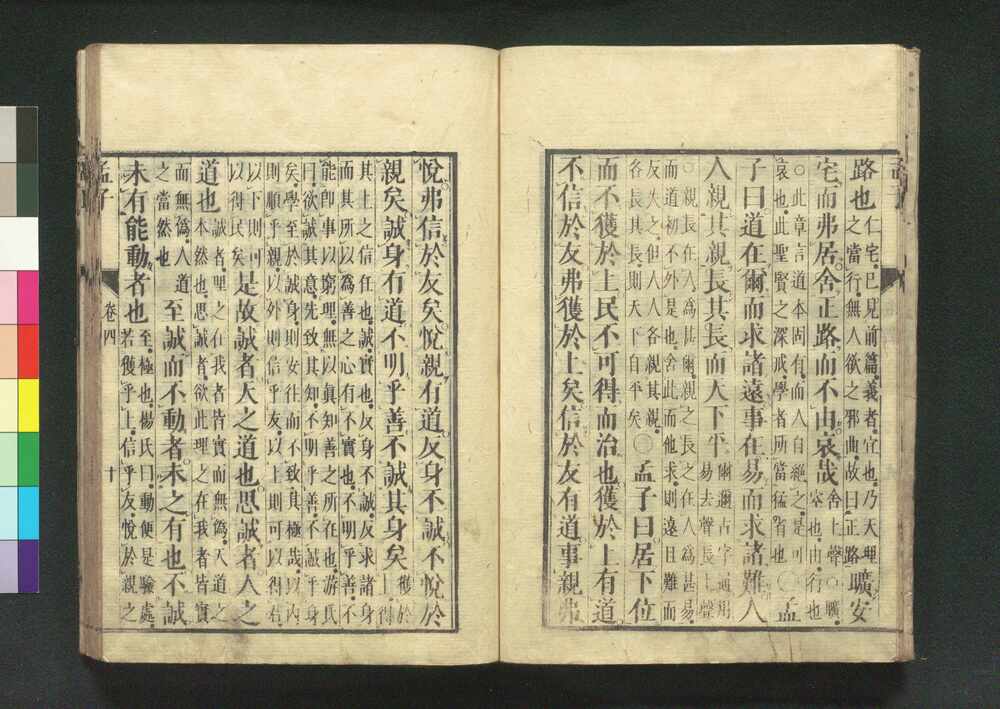 孟子
路也仁宅已見前篇義者宜也乃天理
之當行無人欲之邪曲故曰正路曠安
宅而弗居舍正路而不由哀哉舍上聲○曠
空也由行也
○此章言道本固有而人自絶之是可
哀也此聖賢之深戒學者所當猛省也○孟
子曰道在爾而求諸遠事在易而求諸難人
人親其親長其長而天下平爾邇古字通用
易去聲長上聲
○親長在人為甚爾親之長之在人為甚易
而道初不外是也舍此而他求則遠且難而
反失之但人人各親其親
各長其長則天下自平矣○孟子曰居下位
而不獲於上民不可得而治也獲於上有道
不信於友弗獲於上矣信於友有道事親弗
悅弗信於友矣悅親有道反身不誠不悅於
親矣誠身有道不明乎善不誠其身矣獲於
上得
其上之信任也誠實也反身不誠反求諸身
而其所以為善之心有不實也不明乎善不
能即事以窮理無以眞知善之所在也游氏
曰欲誠其意先致其知不明乎善不誠乎身
矣學至於誠身則安往而不致其極哉以内
則順乎親以外則信乎友以上則可以得君
以下則可
以得民矣是故誠者天之道也思誠者人之
道也誠者理之在我者皆實而無僞天道之
本然也思誠者欲此理之在我者皆實
而無僞人道
之當然也至誠而不動者未之有也不誠
未有能動者也至極也楊氏曰動便是驗處
若獲乎上信乎友悅於親之
孟子 卷四 十